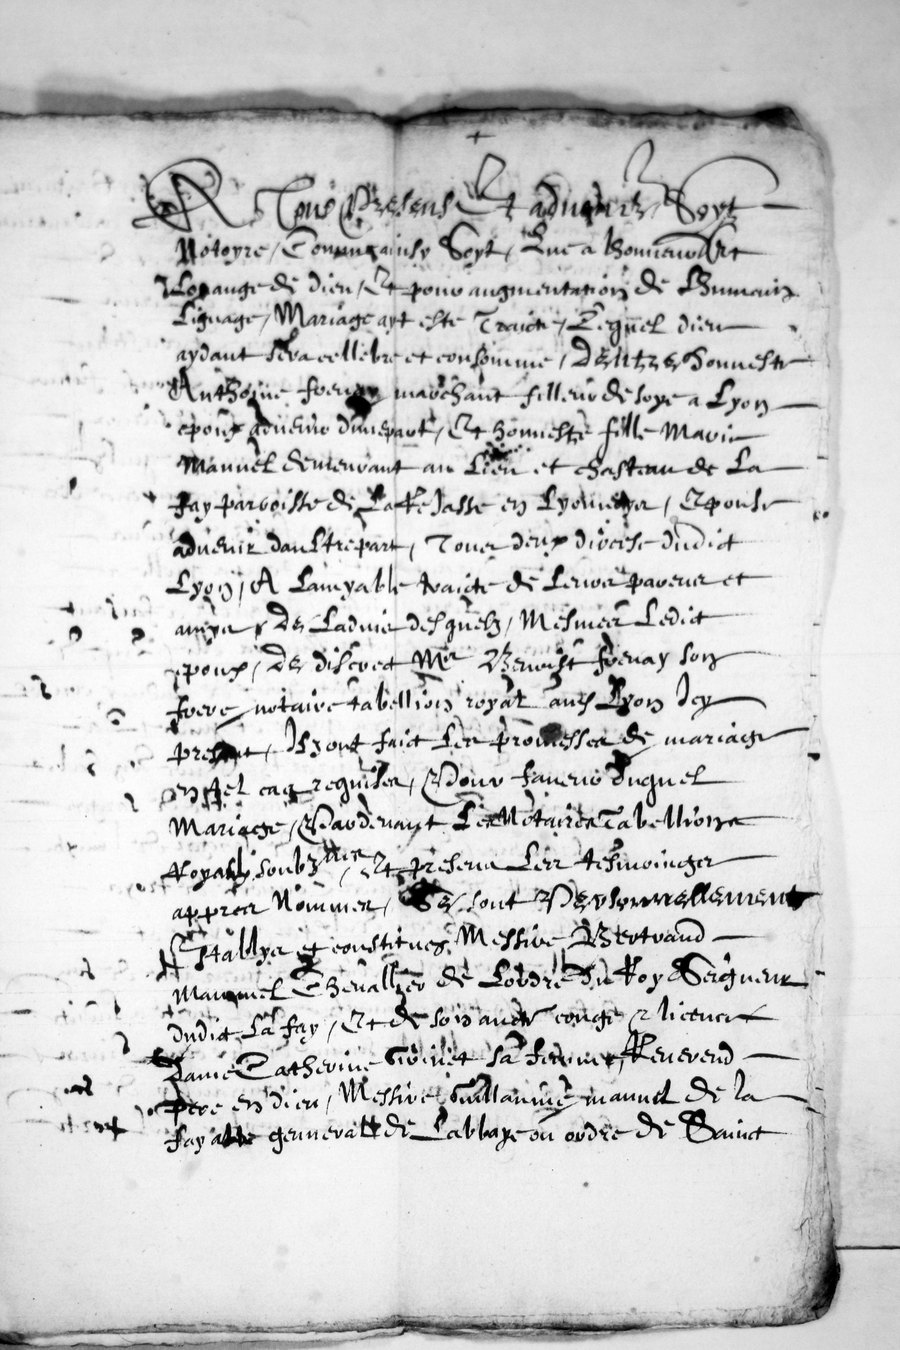 A Tous Presens Et advenir Soyt
Notoyre, Comme ainsy Soyt, Que a l'honneur et
Louange de dieu, Et pour augmentation de L'humain
Lignage, Mariage ayt esté Traicté, Lequel dieu
aydant sera cellebré et consommé, Dentre honneste
Anthoine frenay marchant filleur de soye a Lyon
epoux advenir d'unepart, Et honneste fille Marie
Manuel demeurant au Lieu et chasteau de La
fay parroisse de en Lyonnoys, Epouse
advenir d'aultrepart, Tous deux diocese dudict
Lyon, A Lamyable traicte de Leurs parens et
amys, De Ladvis desquelz, Mesmes Ledict
epoux, De discret Me Benoist frenay son
frere notaire tabellion royal aud Lyon Icy
present, Ilz ont faict Les promesses de mariage
en tel cas requises, Et pour faveur duquel
Mariage, Pardevant Les Notaires Tabellions
Royaulx soubznes, Et presens Les tesmoings
appres Nommes, Se sont Personnellement
Establys et constitues Messire Bertrand
Manuel Chevallier de Lordre du Roy Seigneur
dudict La fay, Et de son auct congé et licence
Dame Catherine sa femme, Reverend
Pere en dieu, Messire Guillaume manuel de la
fay abbe general de Labbaye ou ordre de Sainct